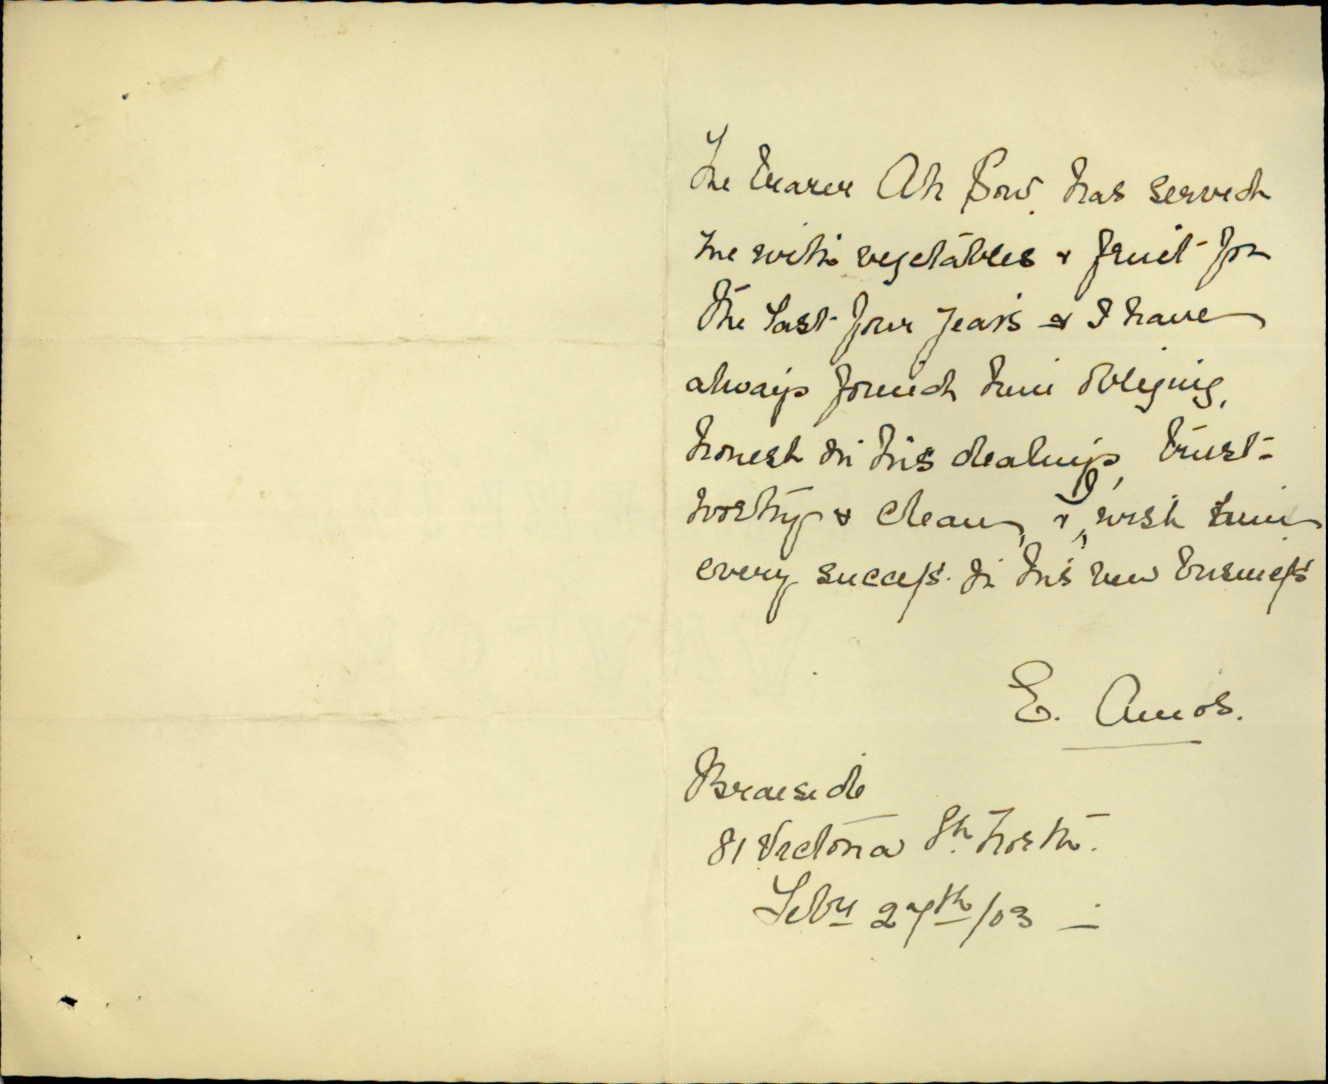 The bearer Ah Sow. has served
me with vegetables & fruit for
the last four years & I have
always found him obliging,
honest in his dealings, trust-
worthy & clean, & I, wish him
every success in his new business
E. Amos.
Braeside
81 Victoria St. North.
Feby 27th/03 —